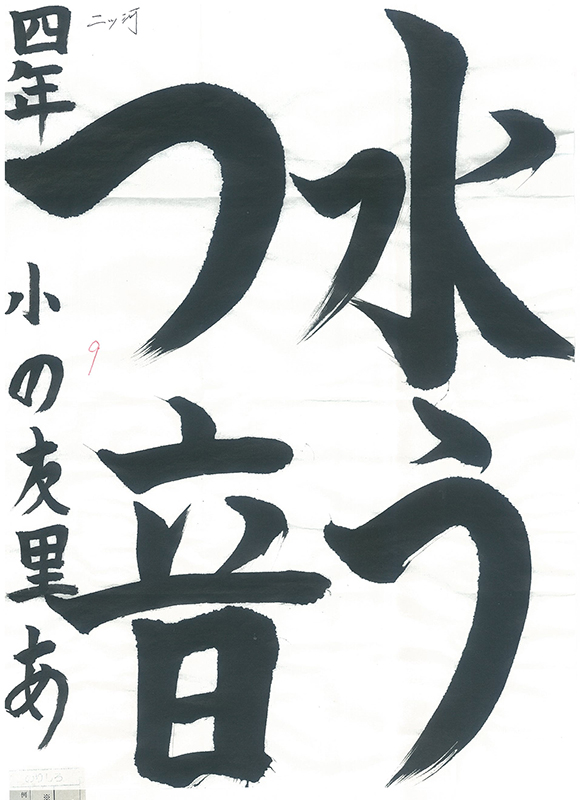 水う
つ音
四年 小の友里あ
二ッ河
9
例
※